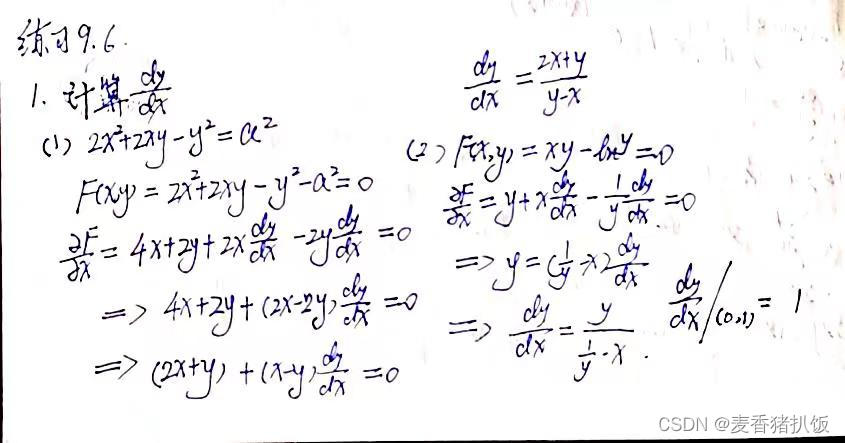 练习9.6.
1. 计算 dy/dx
(1) 2x²+2xy-y²=a²
F(x,y) = 2x²+2xy-y²-a²=0
∂F/∂x = 4x+2y+2x dy/dx -2y dy/dx =0
=> 4x+2y+(2x-2y) dy/dx =0
=> (2x+y)+(x-y) dy/dx =0
dy/dx = (2x+y)/(y-x)
(2) F(x,y) = xy-lny=0
∂F/∂x = y+x dy/dx - 1/y dy/dx =0
=> y=(1/y-x) dy/dx
=> dy/dx = y/(1/y-x).
dy/dx /(0,1) = 1
CSDN @麦香猪扒饭